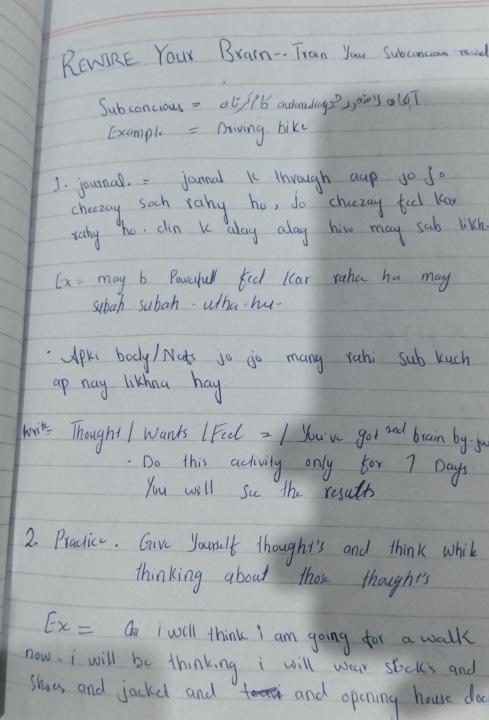 REWIRE Your Brain -- Train Your Subconcious mind
Subconcious = آپکا لاشعور خود automatically کام کرتا ہے
Example = Driving bike
1. journal. = jarnal k through aap jo jo
cheezay soch rahy ho, jo cheezay feel kar
rahy ho. din k alag alag hiso may sab likh
Ex = may b Powerfull feel kar raha hu may
subah subah - utha - hu -
• Apki body/Nafs jo jo mang rahi sub kuch
ap nay likhna hay
Write = Thought / Wants / Feel = / You've got 2nd brain by
• Do this activity only for 7 Days
You will see the results
2. Practice. Give Yourself thought's and think while
thinking about those thought's
Ex = i will think i am going for a walk
now. i will be thinking i will wear socks and
Shoes and jacket and and opening house doo